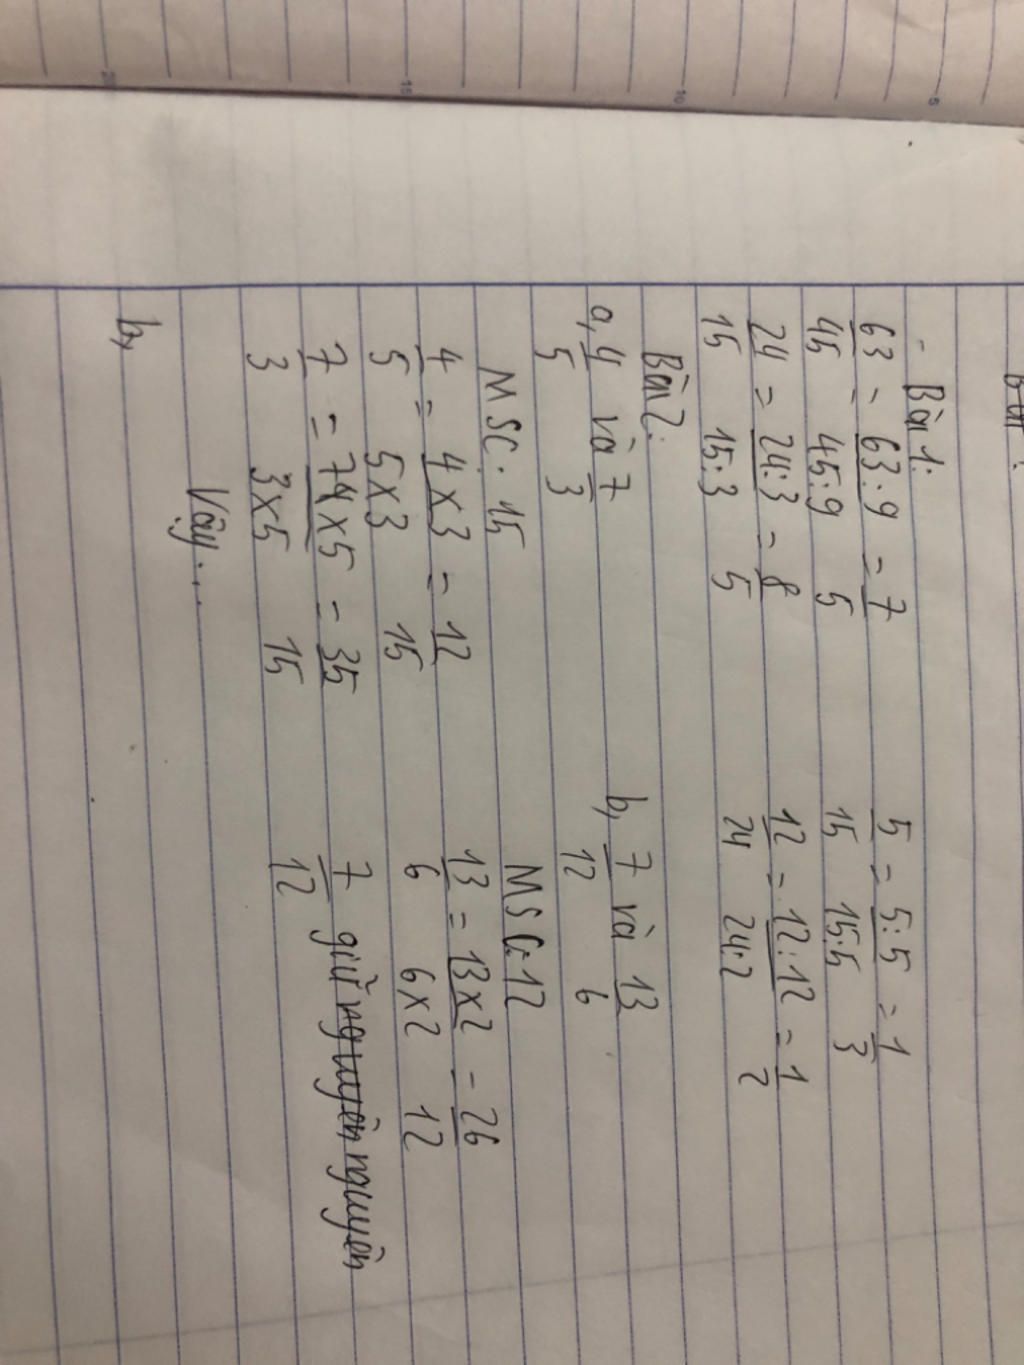 - Bài 1:
63/45 = 63:9/45:9 = 7/5    5/15 = 5:5/15:5 = 1/3
24/15 = 24:3/15:3 = 8/5    12/24 = 12:12/24:2 = 1/2
Bài 2:
a, 4/5 và 7/3    b, 7/12 và 13/6
MSC: 15    MSC: 12
4/5 = 4x3/5x3 = 12/15    13/6 = 13x2/6x2 = 26/12
7/3 = 7x5/3x5 = 35/15    7/12 giữ nguyên
Vậy...
b,
20 15 10 5